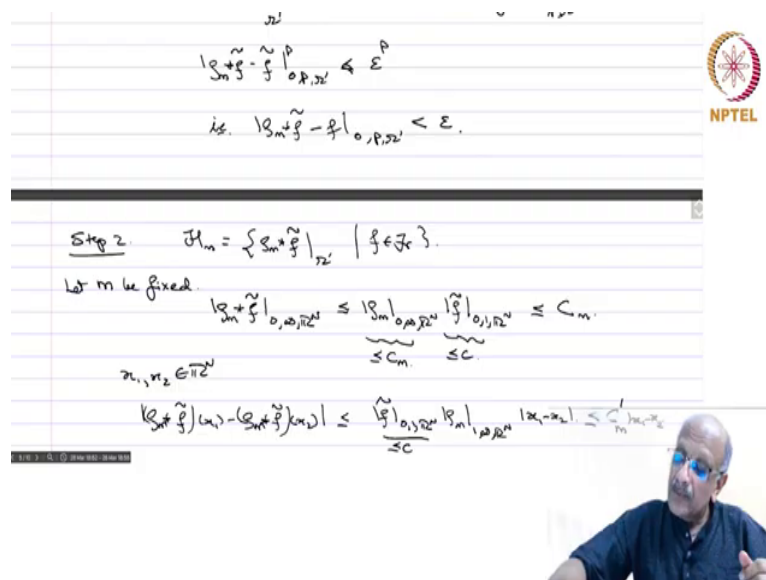 Ω'
|ρ_m * f̃ - f̃|^p_{0,p,Ω'} < ε^p
is. |ρ_m * f̃ - f|_{0,p,Ω'} < ε.
NPTEL
Step 2. ℋ_m = {ρ_m * f̃ |_{Ω'} | f ∈ ℱ}.
Let m be fixed.
|ρ_m * f̃|_{0,∞,ℝ^N} ≤ |ρ_m|_{0,∞,ℝ^N} |f̃|_{0,1,ℝ^N} ≤ C_m.
≤ C_m ≤ C.
x_1, x_2 ∈ ℝ^N
|(ρ_m * f̃)(x_1) - (ρ_m * f̃)(x_2)| ≤ |f̃|_{0,1,ℝ^N} |ρ_m|_{1,∞,ℝ^N} |x_1 - x_2| ≤ C'_m |x_1 - x_2
≤ C